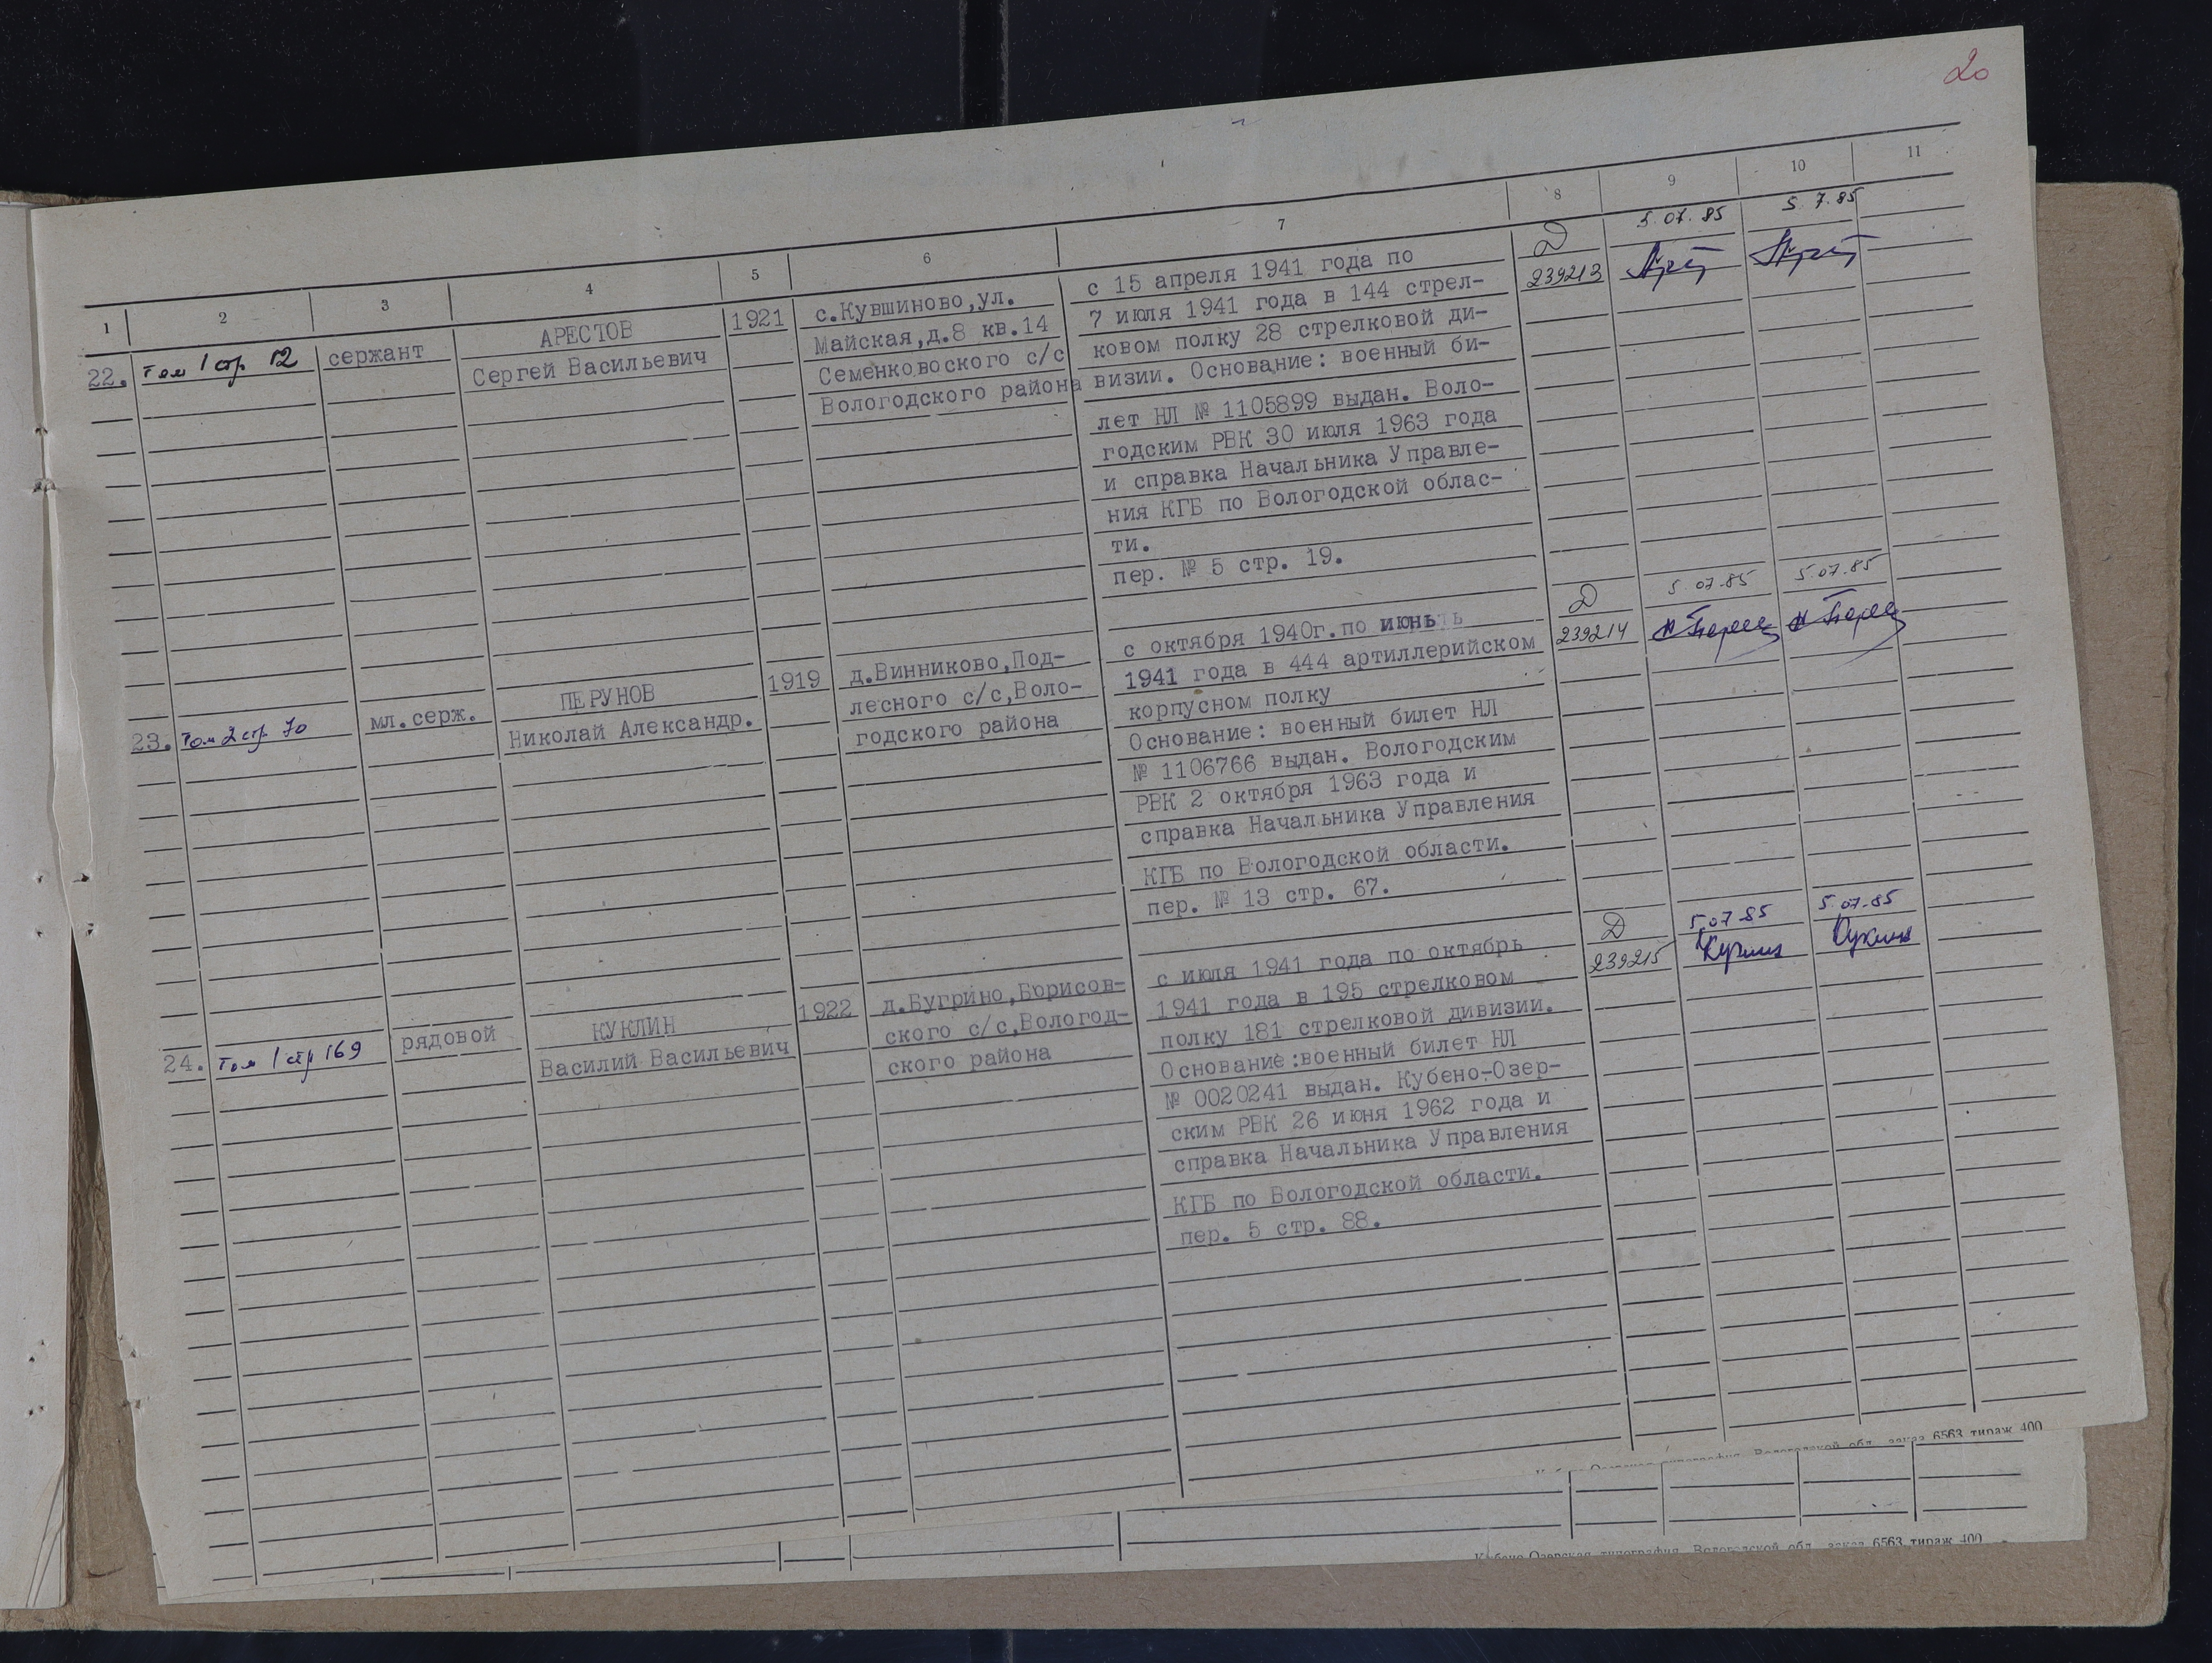 20
1 2 3 4 5 6 7 8 9 10 11
22. Том 1 стр 12 сержант
АРЕСТОВ
Сергей Васильевич
1921
с.Кувшиново,ул.
Майская,д.8 кв.14
Семенковоского с/с
Вологодского района
с 15 апреля 1941 года по
7 июля 1941 года в 144 стрел-
ковом полку 28 стрелковой ди-
визии. Основание: военный би-
лет НЛ № 1105899 выдан. Воло-
годским РВК 30 июля 1963 года
и справка Начальника Управле-
ния КГБ по Вологодской облас-
ти.
пер. № 5 стр. 19.
Д
239213
5.07.85
5.7.85
23. Том 2 стр 70 мл.серж.
ПЕРУНОВ
Николай Александр.
1919
д.Винниково,Под-
лесного с/с,Воло-
годского района
с октября 1940г.по июнь
1941 года в 444 артиллерийском
корпусном полку
Основание: военный билет НЛ
№ 1106766 выдан. Вологодским
РВК 2 октября 1963 года и
справка Начальника Управления
КГБ по Вологодской области.
пер. № 13 стр. 67.
Д
239214
5.07.85
5.07.85
24. Том 1 стр 169 рядовой
КУКЛИН
Василий Васильевич
1922
д.Бугрино,Борисов-
ского с/с,Вологод-
ского района
с июля 1941 года по октябрь
1941 года в 195 стрелковом
полку 181 стрелковой дивизии.
Основание:военный билет НЛ
№ 0020241 выдан. Кубено-Озер-
ским РВК 26 июня 1962 года и
справка Начальника Управления
КГБ по Вологодской области.
пер. 5 стр. 88.
Д
239215
5.07.85
5.07.85
Вологодской обл. заказ 6563 тираж 400
Кубено-Озерская типография, Вологодской обл. заказ 6563 тираж 400